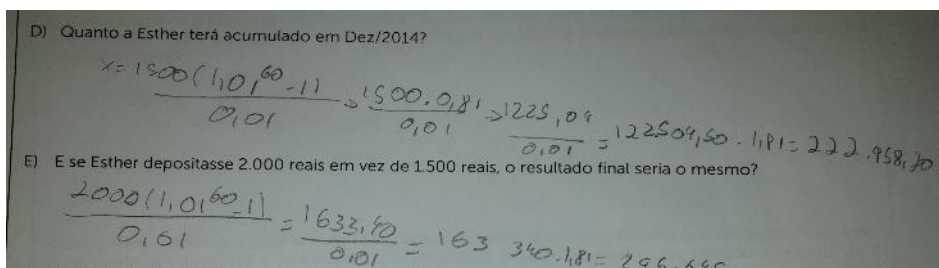 D) Quanto a Esther terá acumulado em Dez/2014?
x = 1500(1,01^60 - 1) / 0,01 → 1500.0,81 / 0,01 → 1225,04 / 0,01 = 122504,50 . 1,81 = 222.958,20
E) E se Esther depositasse 2.000 reais em vez de 1.500 reais, o resultado final seria o mesmo?
2000(1,01^60 - 1) / 0,01 = 1633,40 / 0,01 = 163 340.1,81 =